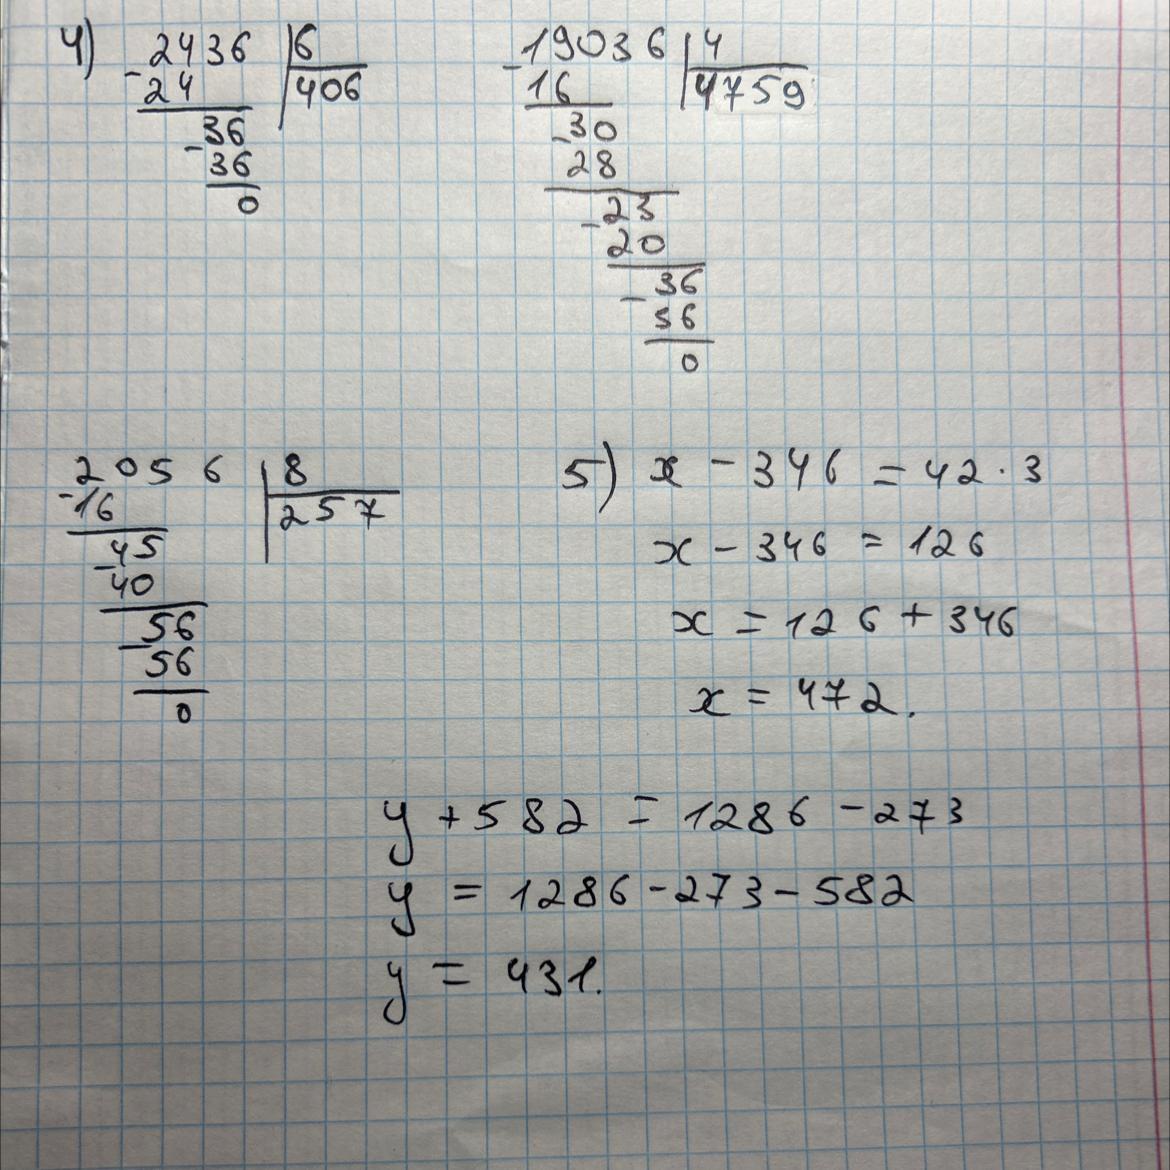 4) 2436 | 6
- 24 | 406
- 36
36
0
- 19036 | 4
16 | 4759
- 30
28
- 23
20
- 36
36
0
2056 | 8
- 16 | 257
- 45
40
- 56
56
0
5) x - 346 = 42 · 3
x - 346 = 126
x = 126 + 346
x = 472.
y + 582 = 1286 - 273
y = 1286 - 273 - 582
y = 431.